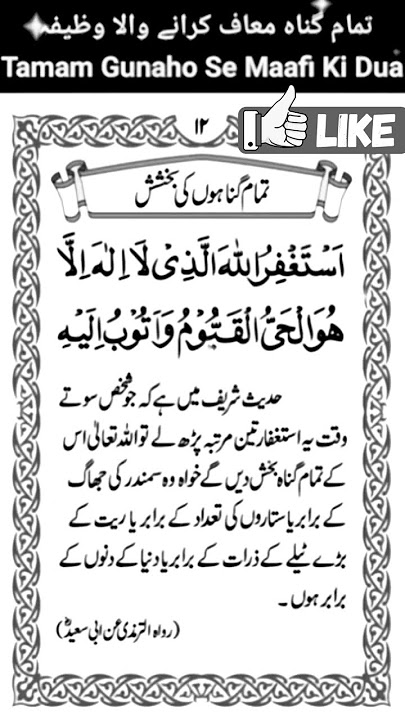 تمام گناہ معاف کرانے والا وظیفہ
Tamam Gunaho Se Maafi Ki Dua
۱۲
LIKE
تمام گناہوں کی بخشش
اَسْتَغْفِرُ اللّٰهَ الَّذِیْ لَاۤ اِلٰهَ اِلَّا
هُوَ الْحَیُّ الْقَیُّوْمُ وَاَتُوْبُ اِلَیْهِ
حدیث شریف میں ہے کہ جو شخص سوتے
وقت یہ استغفار تین مرتبہ پڑھ لے تو اللہ تعالیٰ اس
کے تمام گناہ بخش دیں گے خواہ وہ سمندر کی جھاگ
کے برابر یا ستاروں کی تعداد کے برابر یا ریت کے
بڑے ٹیلے کے ذرات کے برابر یا دنیا کے دنوں کے
برابر ہوں ۔
(رواہ الترمذی عن ابی سعیدؓ)